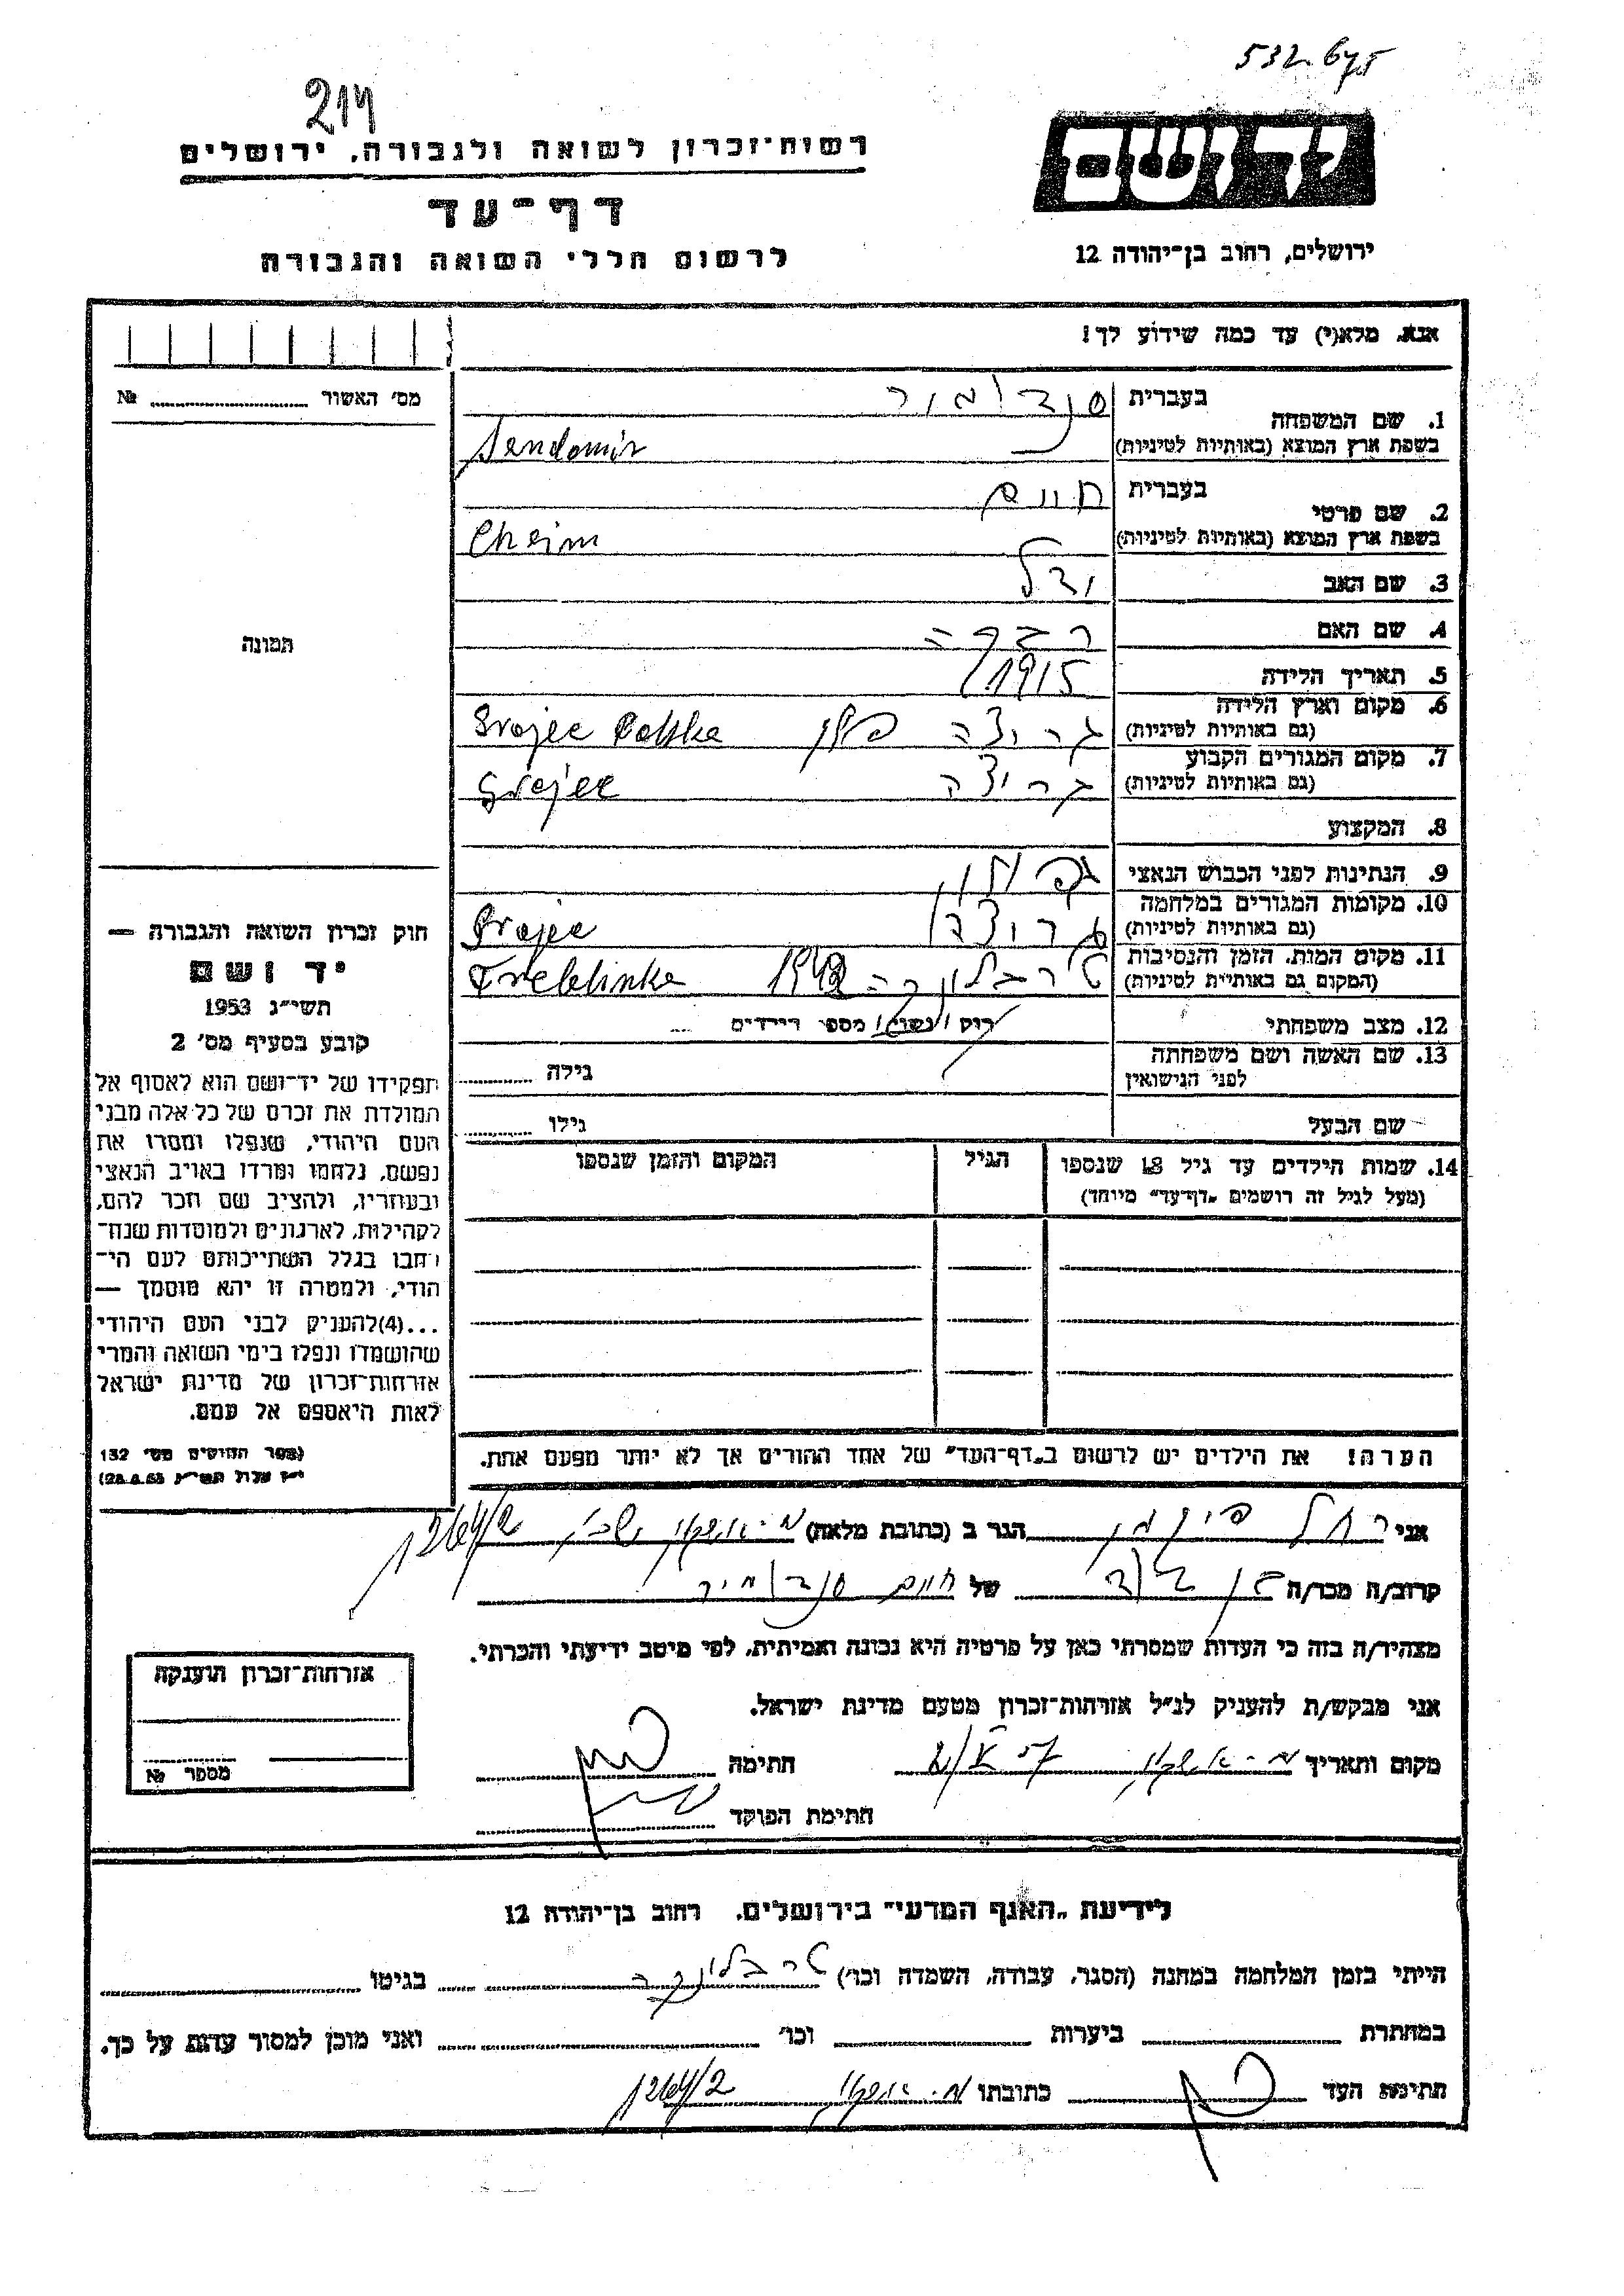 214
רשות־זכרון לשואה ולגבורה, ירושלים
דף־עד
לרשום חללי השואה והגבורה
יד ושם
ירושלים, רחוב בן־יהודה 12
אנא, מלא(י) עד כמה שידוע לך!
מס' האשור № 
1. שם המשפחה בעברית סנדומיר
בשפת ארץ המוצא (באותיות לטיניות) Sendomir
2. שם פרטי בעברית חיים
בשפת ארץ המוצא (באותיות לטיניות) Cheim
3. שם האב ידל
4. שם האם רבקה
5. תאריך הלידה 1915
6. מקום וארץ הלידה גרויצה פולין Grojec Polska
(גם באותיות לטיניות)
7. מקום המגורים הקבוע גרויצה Grojec
(גם באותיות לטיניות)
8. המקצוע
9. הנתינות לפני הכבוש הנאצי
10. מקומות המגורים במלחמה Grojec
(גם באותיות לטיניות)
11. מקום המות, הזמן והנסיבות טרבלינקה 1942 Treblinka
(המקום גם באותיות לטיניות)
12. מצב משפחתי רוק / נשוי / מספר הילדים
13. שם האשה ושם משפחתה לפני הנישואין גילה
שם הבעל גילו
14. שמות הילדים עד גיל 18 שנספו הגיל המקום והזמן שנספו
(מעל לגיל זה רושמים "דף־עד" מיוחד)
הערה! את הילדים יש לרשום ב"דף־העד" של אחד ההורים אך לא יותר מפעם אחת.
תמונה
חוק זכרון השואה והגבורה —
יד ושם
תשי"ג 1953
קובע בסעיף מס' 2
תפקידו של יד־ושם הוא לאסוף אל
המולדת את זכרם של כל אלה מבני
העם היהודי, שנפלו ומסרו את
נפשם, נלחמו ומרדו באויב הנאצי
ובעוזריו, ולהציב שם וזכר להם,
לקהילות, לארגונים ולמוסדות שנח־
רבו בגלל השתייכותם לעם הי־
הודי, ולמטרה זו יהא מוסמך —
...(4)להעניק לבני העם היהודי
שהושמדו ונפלו בימי השואה והמרי
אזרחות־זכרון של מדינת ישראל
לאות היאספם אל עמם.
(ספר החוקים מס' 132
י"ז אלול תשי"ג 28.8.53)
אני רחל פיינמן הגר ב (כתובת מלאה)
קרוב/ה מכר/ה של חיים סנדומיר
מצהיר/ה בזה כי העדות שמסרתי כאן על פרטיה היא נכונה ואמיתית, לפי מיטב ידיעתי והכרתי.
אני מבקש/ת להעניק לנ"ל אזרחות־זכרון מטעם מדינת ישראל.
מקום ותאריך חתימה
חתימת הפוקד
אזרחות־זכרון תוענקה
מספר №
לידיעת "האגף המדעי" בירושלים, רחוב בן־יהודה 12
הייתי בזמן המלחמה במחנה (הסגר, עבודה, השמדה וכו') טרבלינקה בגיטו
במחתרת ביערות וכו' ואני מוכן למסור עדות על כך.
חתימת העד כתובתו